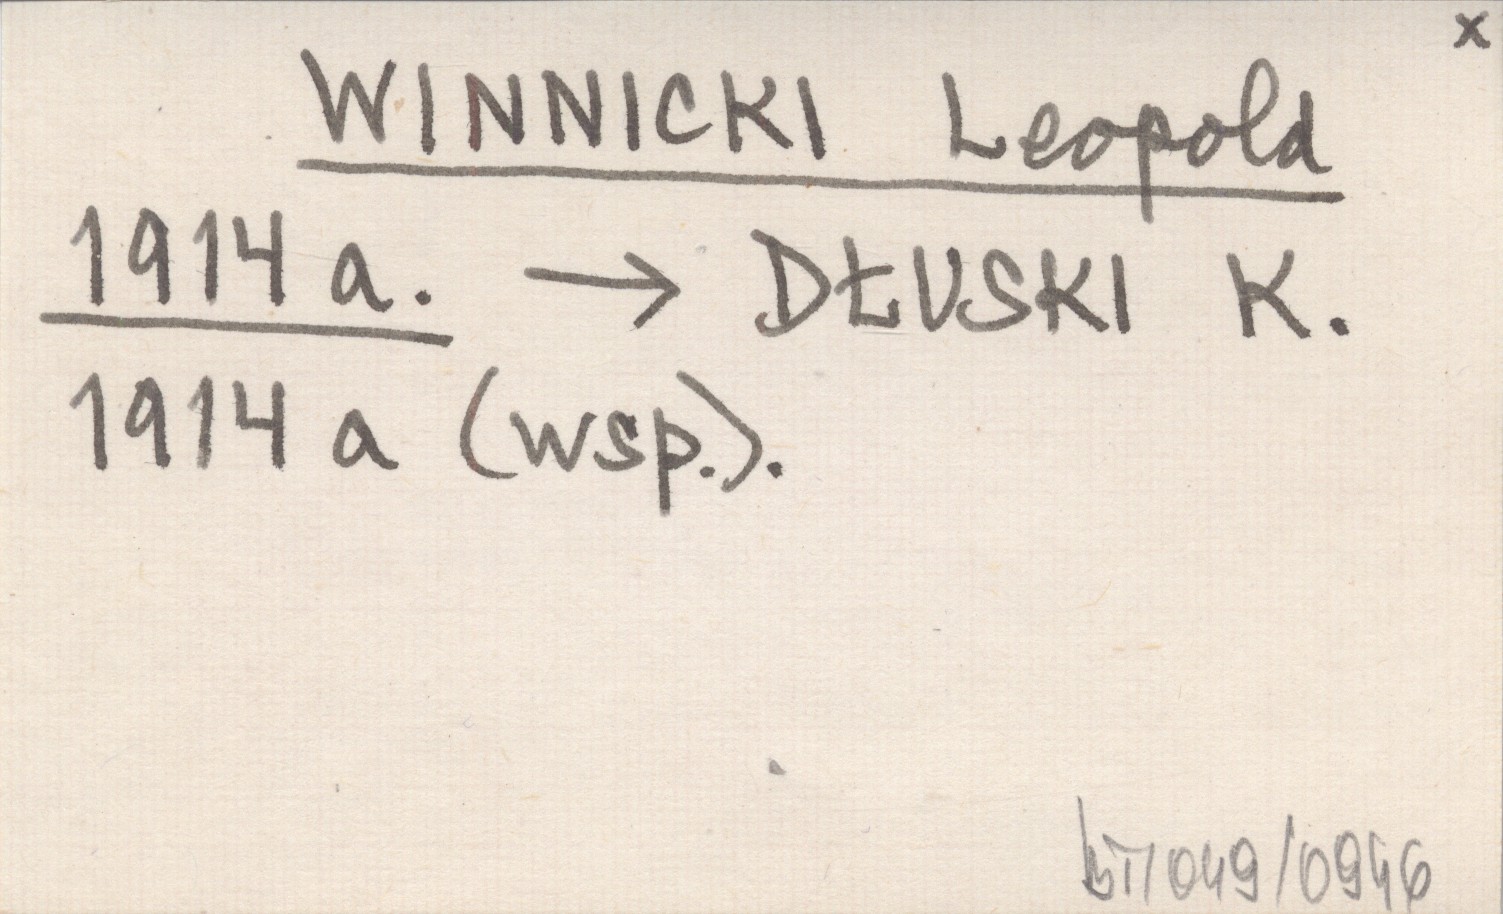 x
WINNICKI Leopold
1914 a. → DŁUSKI K.
1914 a (wsp.).
049/0946